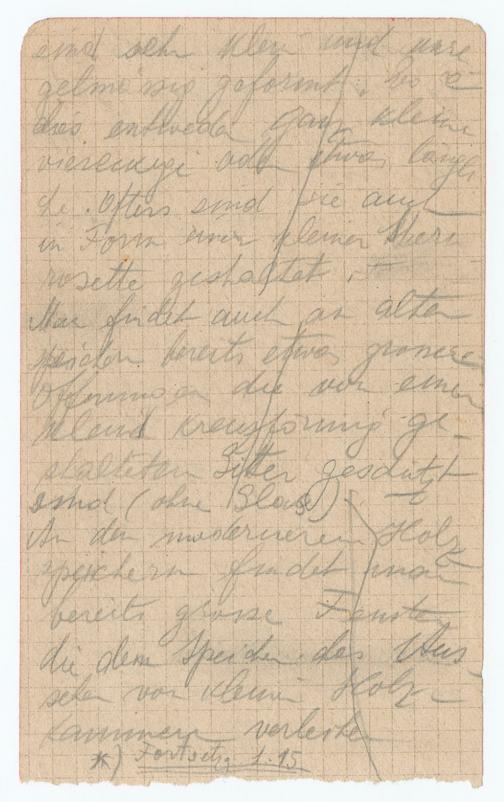 sind sehr klein und unre
gelmässig geformt. Es s
dies entweder ganz kleine
viereckige oder etwas längli
che. Öfters sind sie auch
in Form einer kleinen
rosette gestaltet.
Man findet auch an alten
speichern bereits etwas grossere
Öffnungen die von einem
kreuzförmig ge-
stalteten Gitter geschützt
sind (ohne Glas)
An den moderneren Holz
speichern findet man
bereits grosse Fenster
die dem Speicher das Aus-
sehen von kleinen Holz-
kammern verleihen
*) Fortsetzg. 1.15